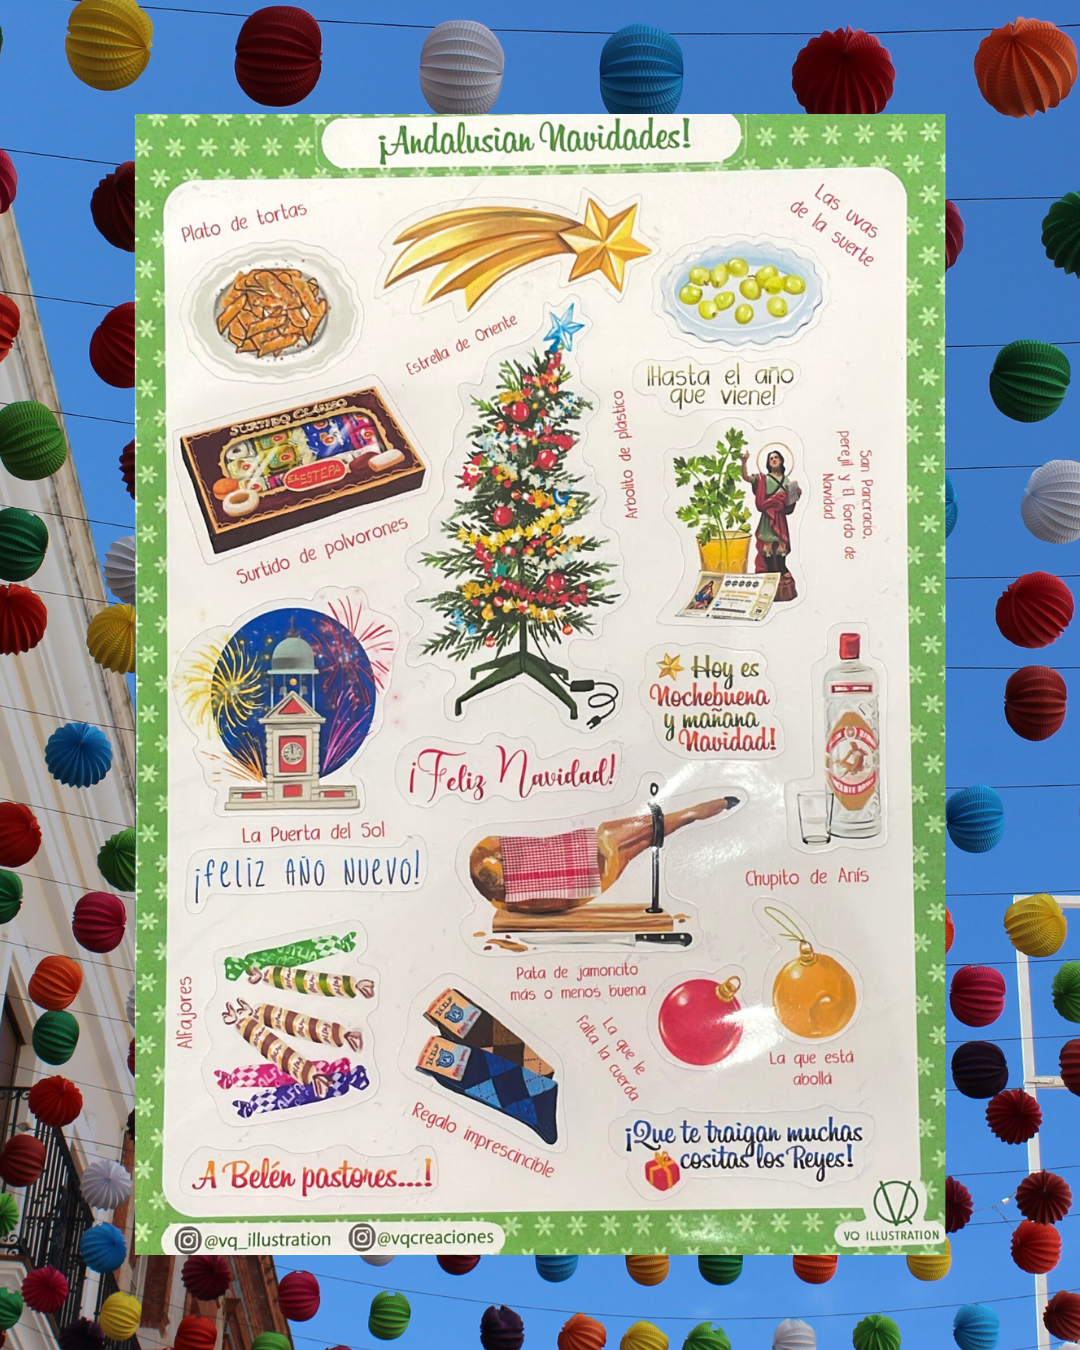 ¡Andalusian Navidades!
Plato de tortas
Las uvas
de la suerte
Estrella de Oriente
¡Hasta el año
que viene!
SURTIDO CLÁSICO
E. ESTEPA
Surtido de polvorones
Arbolito de plástico
San Pancracio,
perejil y El Gordo de
Navidad
Hoy es
Nochebuena
y mañana
Navidad!
¡Feliz Navidad!
La Puerta del Sol
¡FELIZ AÑO NUEVO!
Chupito de Anís
Pata de jamoncito
más o menos buena
Alfajores
Regalo imprescincible
La que le
falta la cuerda
La que está
abollá
A Belén pastores...!
¡Que te traigan muchas
cositas los Reyes!
@vq_illustration
@vqcreaciones
VQ ILLUSTRATION